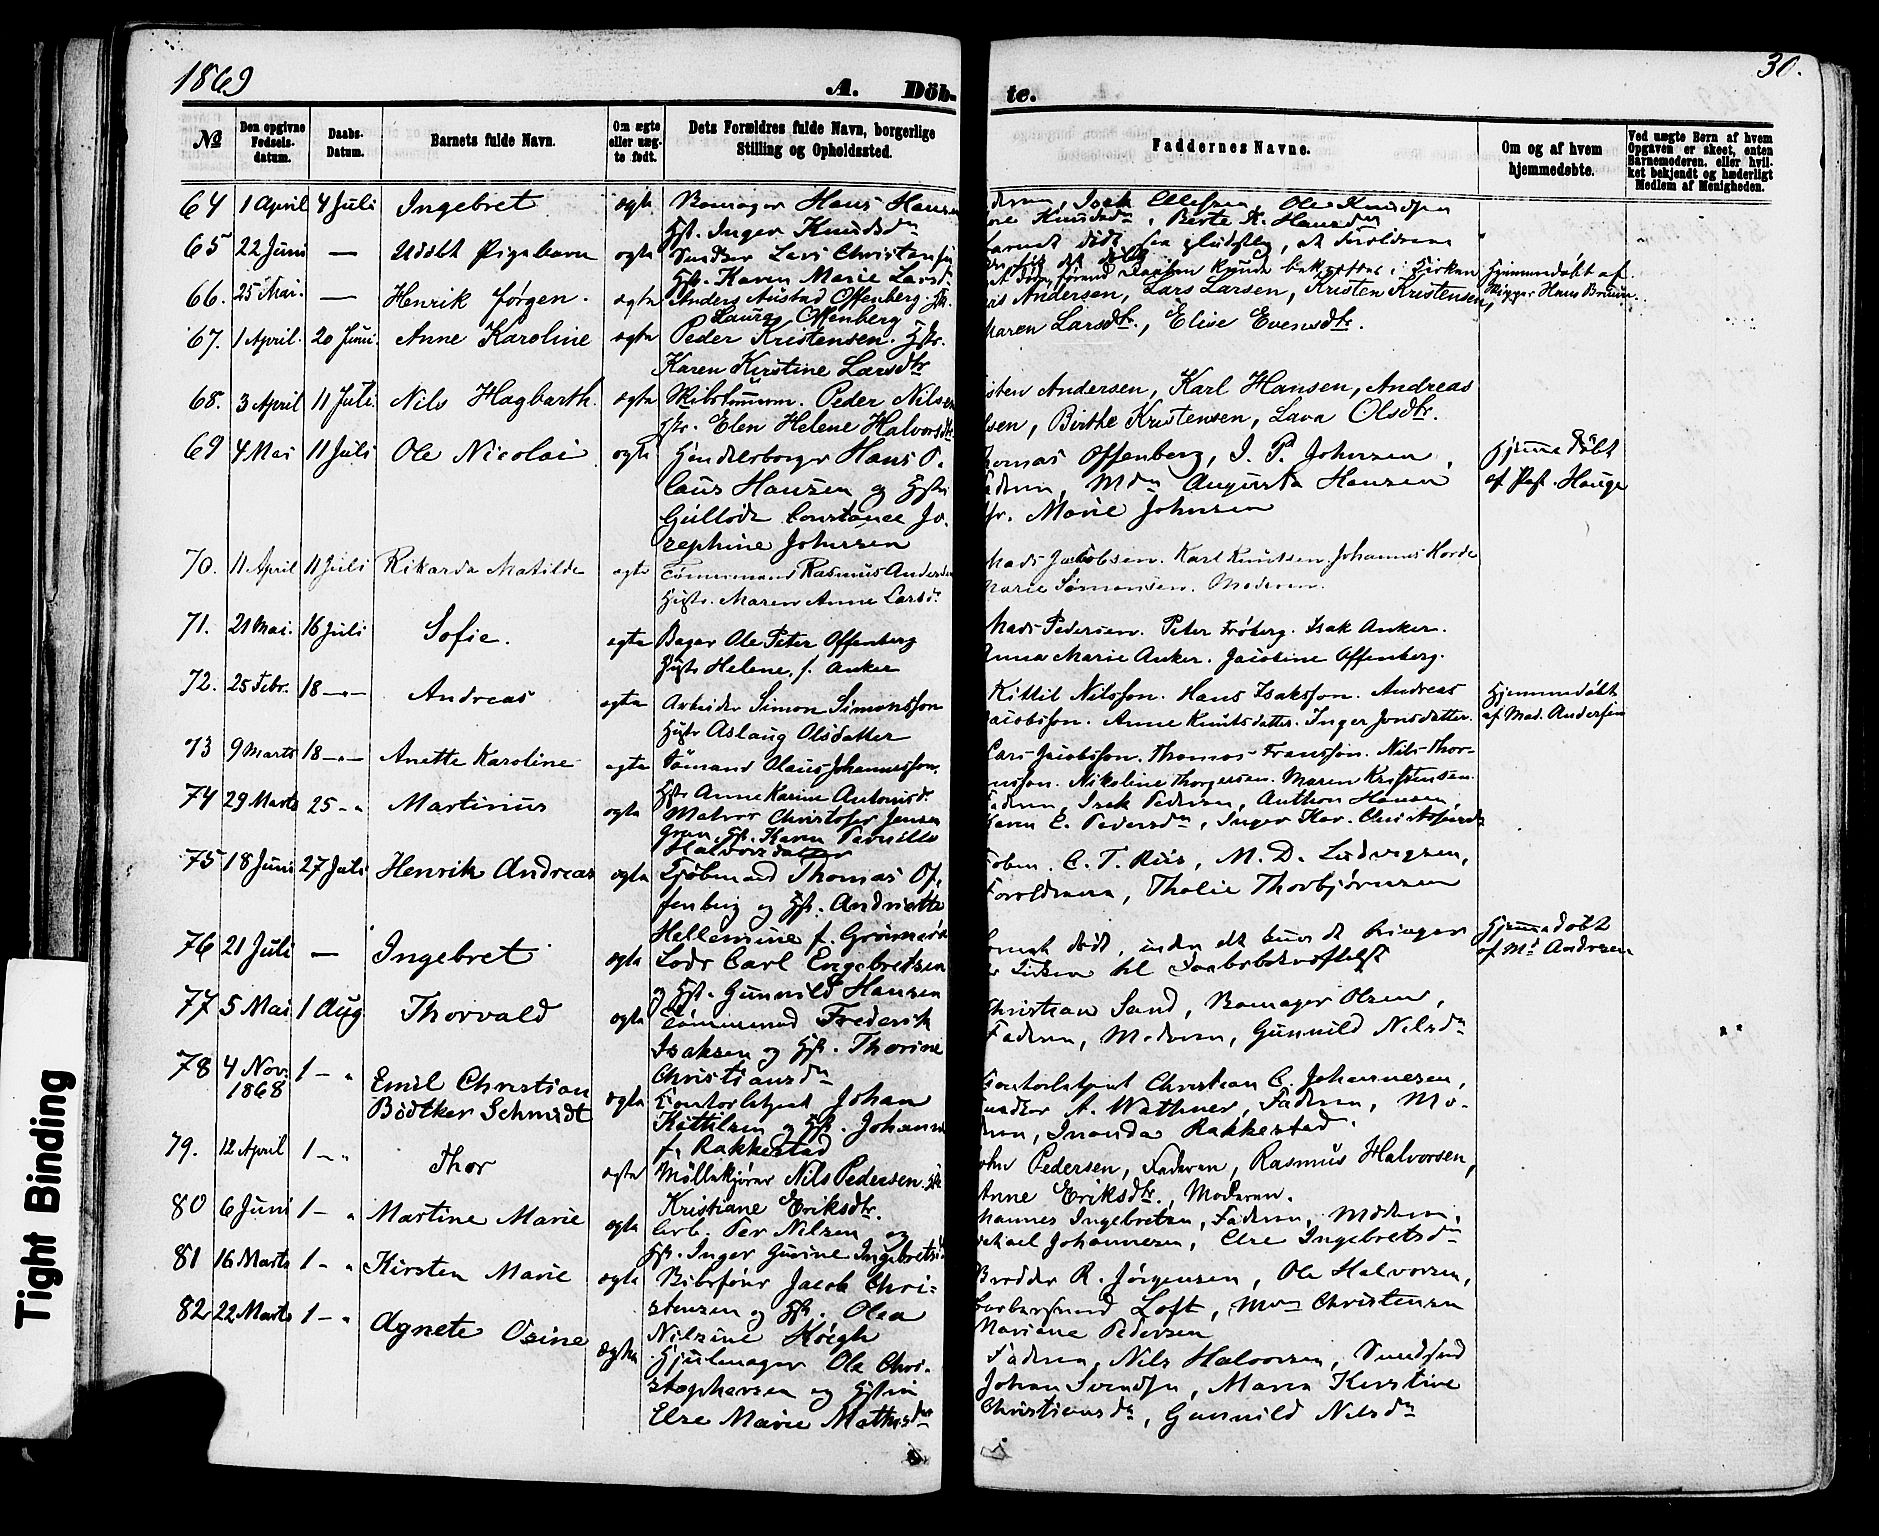 1869
A. Döb-
te.
30.
№
Den opgivne Fødsels-datum.
Daabs-Datum.
Barnets fulde Navn.
Om ægte eller uæg-te født.
Dets Forældres fulde Navn, borgerlige Stilling og Opholdssted.
Faddernes Navne.
Om og af hvem hjemmedøbte.
Ved uægte Børn af hvem Opgaven er skeet, enten Barnemoderen, eller hvil-ket bekjendt og hæderligt Medlem af Menigheden.
64 1 April 4 Juli Ingebret ægte Hans Hansen
Hst. Inger Knudsdr
Isak Ellefsen, Ole Knudsen
Knudsdn, Berte K. Hansdn
65 22 Juni — Udöbt Pigebarn ægte Lars Christensen
Hst. Karen Marie Larsd.
66. 25 Mai. — Henrik Jørgen. ægte Anders Austad Offenberg. Hst.
Laura Offenberg
Hjemmedøbt af
Skipper Hans Bruun.
67. 1 April. 20 Juni. Anne Karoline ægte Peder Kristensen. Hstr.
Karen Kirstine Larsdtr
Andersen, Lars Larsen, Kristen Kristensen,
Maren Larsdtr., Elise Evensdtr.
68. 3 April 11 Juli. Nils Hagbarth. ægte Peder Nilsen
Hstr. Elen Helene Halvorsdtr
sten Andersen, Karl Hansen, Andreas
lsen, Birthe Kristensen, Lava Olsdtr.
69 4 Mai 11 Juli Ole Nicolai ægte Handelsborger Hans P.
Claus Hansen og Hstr
Gullode Constance Jo-
sephine Johnsen
Thomas Offenberg, I. P. Johnsen,
Faderen, Mdn Augusta Hansen
Fr. Marie Johnsen
Hjemmedöbt
af Past. Hauge
70. 11 April 11 Juli Rikarda Matilde ægte Tømmermand Rasmus Andersen
Hustr. Maren Anne Larsdr
Mads Jacobsen. Karl Knutsen. Johannes Horde
Marie Simonsen. Moderen.
71. 21 Mai. 16 Juli Sofie. ægte Bager Ole Peter Offenberg
Hustr Helene, f. Anker
Mads Pedersen. Peter Fröberg. Isak Anker.
Anna Marie Anker. Jacobine Offenberg.
72. 25 Febr. 18 —"— Andreas ægte Arbeider Simon Simonsson
Hustr Aslaug Olsdatter
Kittil Nilsson. Hans Isaksson. Andreas
Jacobsson. Anne Knutsdatter. Inger Jonsdatter.
Hjemmedøbt
af Mad. Andersen
73 9 Marts 18 —"— Anette Karoline ægte Sömand Olaus Johannesson.
Hstr Anne Karine Antonisd.
Lars Jacobsson. Thomas Fransson. Nils Thor-
nsson. Nikoline Thorgersen. Maren Kristensen
74 29 Marts 25 —"— Martinius ægte Matros Christofer Jensen
Gran Hst. Karen Pernille
Halvorsdatter
Faderen, Isak Pedersen, Anthon Hansen,
Karen E. Pedersdn, Inger Kar. Christophersdn
75 18 Juni 27 Juli Henrik Andreas ægte Kjöbmand Thomas Of-
fenberg og Hst. Andriette
Hellensine f.
C. T. Riis, M. D. Ludvigsen,
Forældrene, Thalie Thorbjörnsen
76 21 Juli — Ingebret ægte Lods Carl Engebretsen
og Hst. Gunnild Hansen
Hjemmedøbt
af Md Andersen
77 5 Mai 1 Aug Thorvald ægte Tømmermand Frederik
Isaksen og Hst. Thorine
Christiansdn
Christian Sand, Olsen,
Faderen, Moderen, Gunnild Nilsdn
78 4 Nov. 1868 1 —" Emil Christian
Bödtker Schmidt ægte Contorbetjent Johan
Kittilsen og Hst. Johanne
f. Rakkestad
Contorbetjent Christian C. Johannesen,
A. Wathner, Faderen, Mo-
deren, Inanda Rakkestad.
79. 12 April 1 —" Thor ægte Möllekjörer Nils Pedersen. Hst.
Kristiane Eriksdtr.
Pedersen, Faderen, Rasmus Halvorsen,
Anne Eriksdtr., Moderen.
80 6 Juni 1 —" Martine Marie ægte Arb. Per Nilsen og
Hst. Inger Gurine Ingebretsd
Johannes Ingebretsen, Faderen, Moderen,
Michael Johannesen, Else Ingebretsdn
81 16 Marts 1 —" Kirsten Marie ægte Jacob Chri-
stensen og Hst. Olea
Nilsine Höegh
R. Jørgensen, Ole Halvorsen,
Loft, Mdn Christensen
Mariane Pedersen
82 22 Marts 1 —" Agnete Osine ægte Hjulmager Ole Chri-
stophersen og Hstru
Else Marie Mathisdn
Faderen, Nils Halvorsen, Svend
Johan Svendsen, Maren Kirstine
Christiansdn, Gunnild Nilsdn
Tight Binding